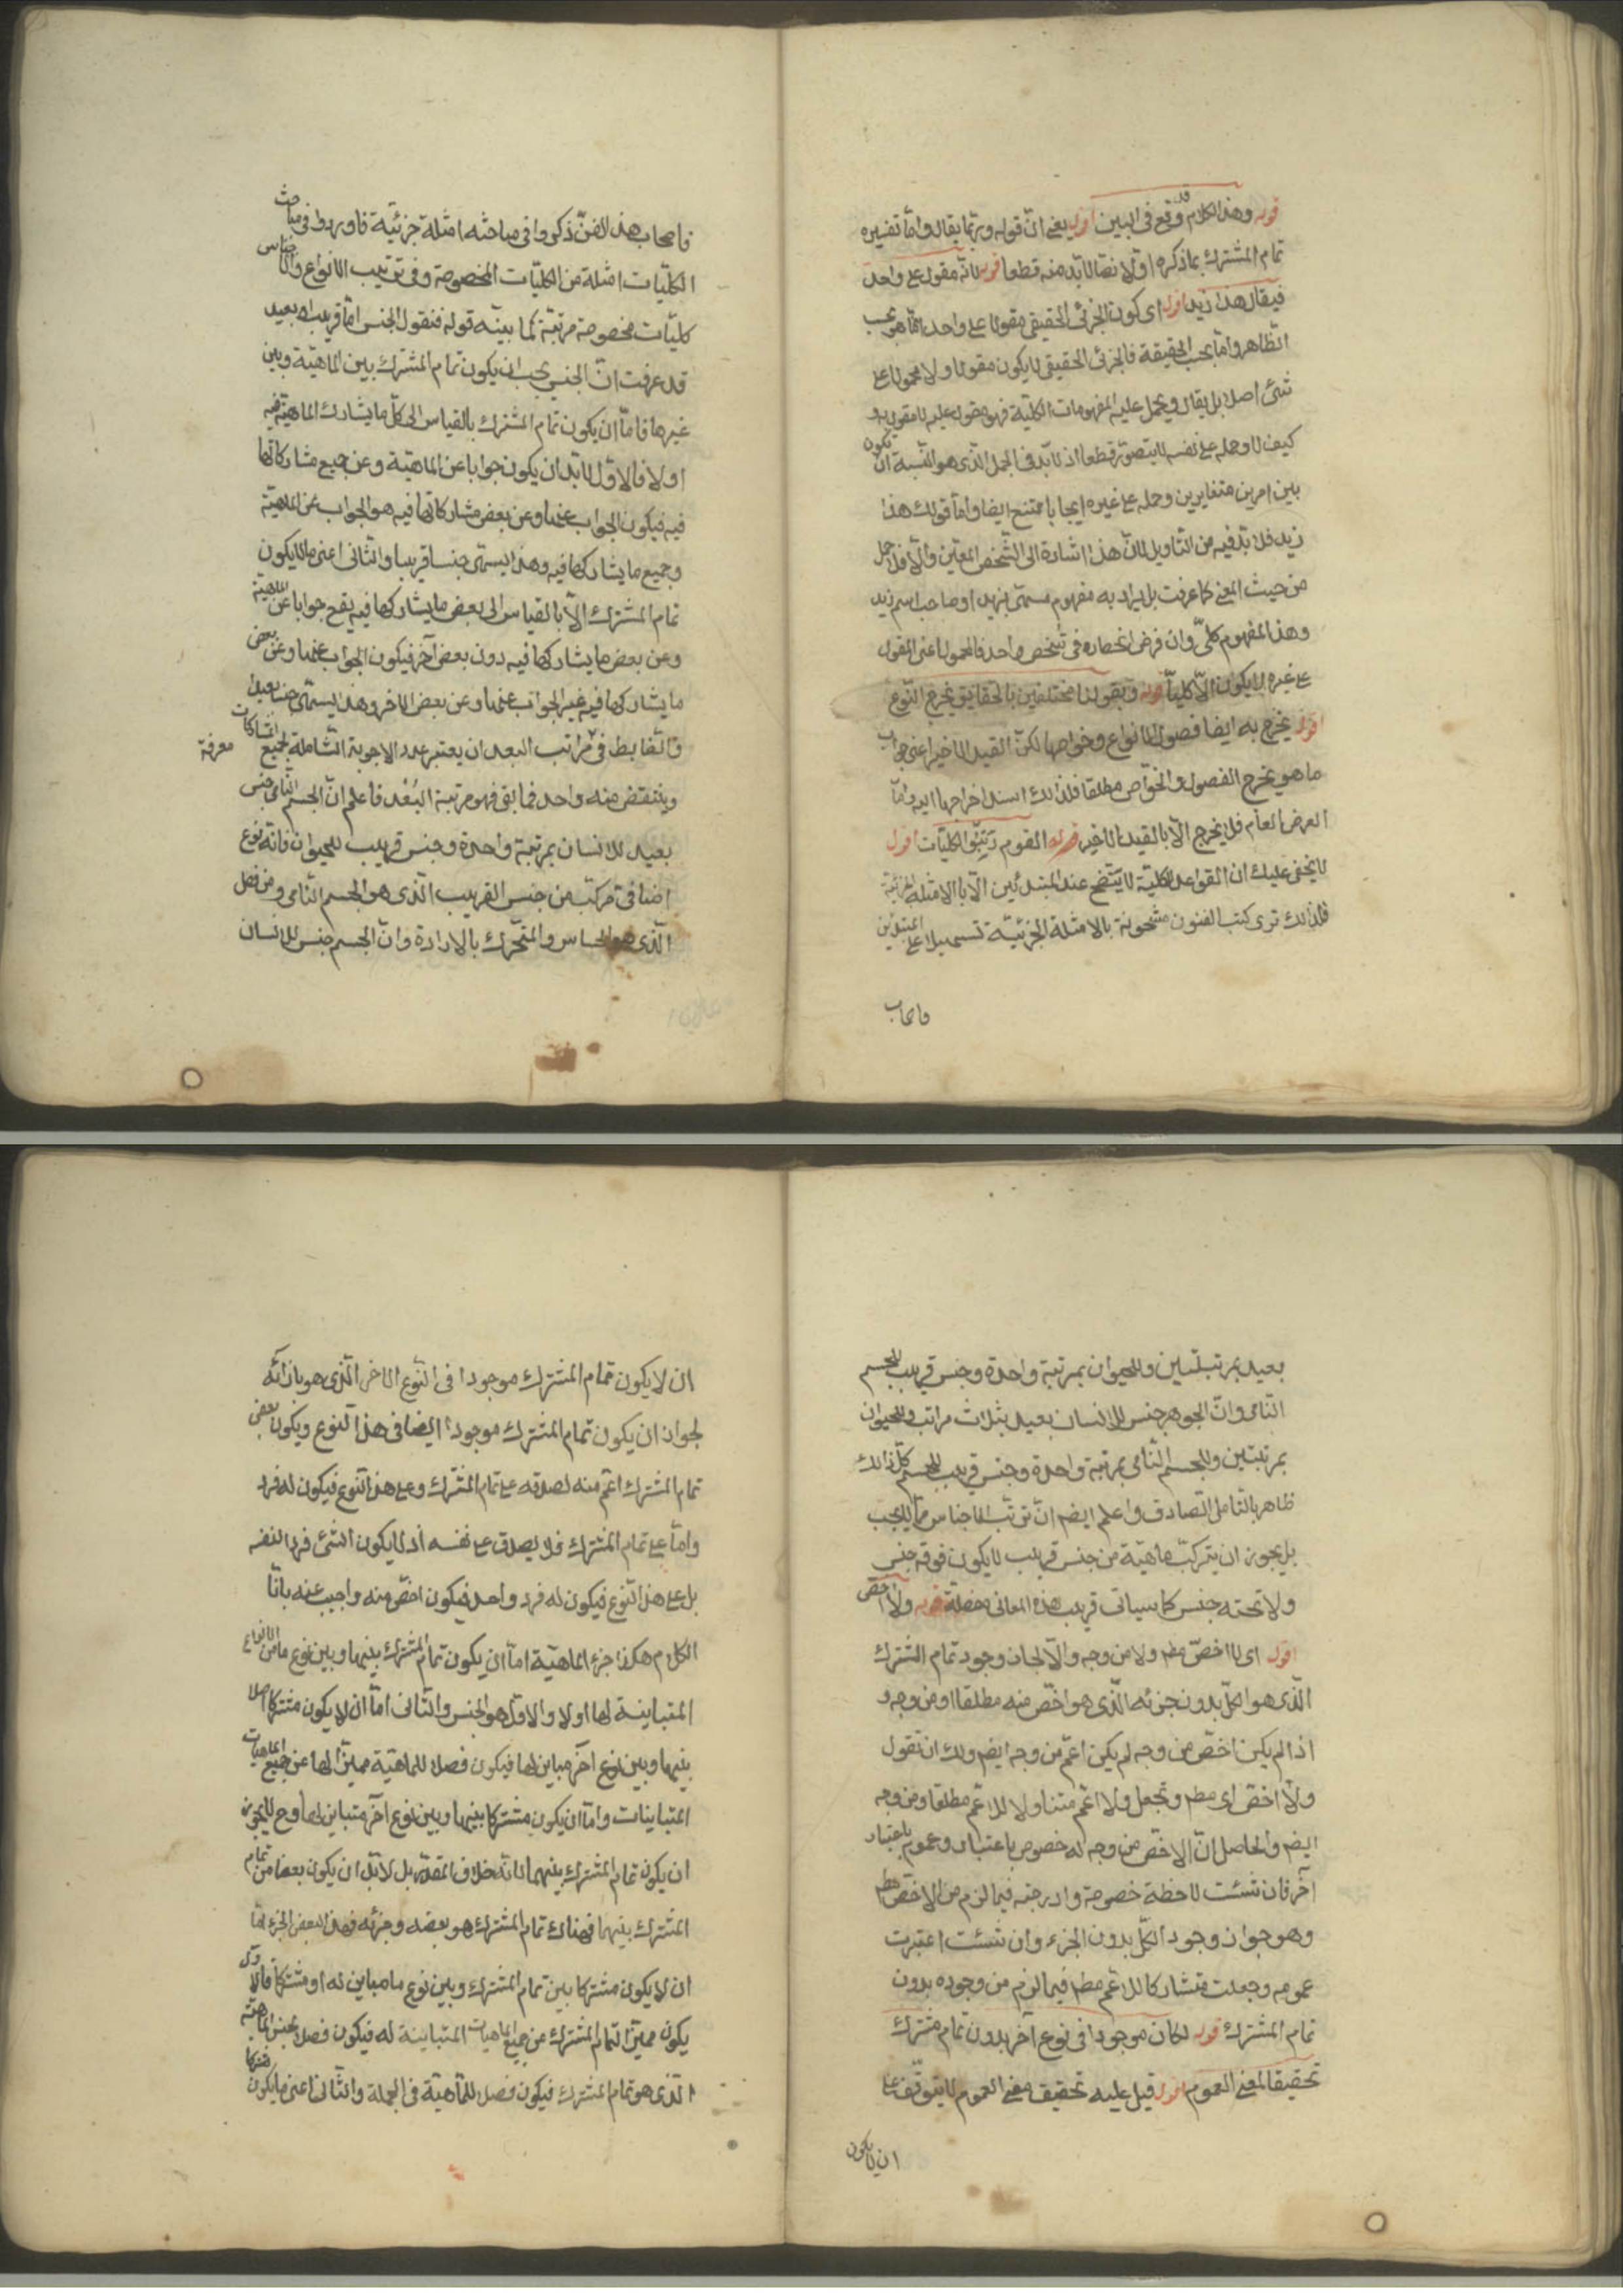 قوله وهذا الكلام قد وقع فى البين اقول يعنى ان قوله وربما يقال واما تفسيره
تمام المشترك بما ذكره اولا نصا لابد منه قطعا قوله لانه مقول على واحد
فيقال هذا زيد اقول اى كون الجزئى الحقيقى مقولا على واحد انما هو بحسب
الظاهر واما بحسب الحقيقة فالجزئى الحقيقى لا يكون مقولا ولا محمولا على
شئ اصلا بل يقال ويحمل عليه المفهومات الكلية فهو مقول عليه لا مقول به
كيف لا وحمله على نفسه لا يتصور قطعا اذ لا بد فى الحمل الذى هو النسبة ان يكون
بين امرين متغايرين وحمله على غيره ايجابا ممتنع ايضا واما قولك هذا
زيد فلا بد فيه من التاويل لان هذا اشارة الى الشخص المعين والا فلا حمل
من حيث المعنى كما عرفت بل يراد به مفهوم مسمى بزيد او صاحب اسم زيد
وهذا المفهوم كلى وان فرض انحصاره فى شخص واحد فالمحمول اعنى المقول
على غيره لا يكون الا كليا قوله وبقولنا مختلفين بالحقايق يخرج النوع
اقول يخرج به ايضا فصول الانواع وخواصها لكن القيد الاخير اعنى جواب
ما هو يخرج الفصول والخواص مطلقا فلذلك اسند اخراجها اليه واما
العرض العام فلا يخرج الا بالقيد الاخير قوله القوم رتبوا الكليات اقول
لا يخفى عليك ان القواعد الكلية لا يتضح عند المبتدئين الا بالامثلة الجزئية
فلذلك ترى كتب الفنون مشحونة بالامثلة الجزئية تسهيلا على المبتدئين
فاصحاب
فاصحاب هذا الفن ذكروا فى مباحثه امثلة جزئية فاوردوا فى مباحث
الكليات امثلة من الكليات المخصوصة وفى ترتيب الانواع والاجناس
كليات مخصوصة مرتبة كما بينه قوله فنقول الجنس اما قريب او بعيد
قد عرفت ان الجنس يجب ان يكون تمام المشترك بين الماهية وبين
غيرها فاما ان يكون تمام المشترك بالقياس الى كل ما يشارك الماهية فيه
او لا فالاول لا بد ان يكون جوابا عن الماهية وعن جميع مشاركاتها
فيه فيكون الجواب عنها وعن بعض مشاركاتها فيه هو الجواب عن الماهية
وجميع ما يشاركها فيه وهذا يسمى جنسا قريبا والثانى اعنى ما لا يكون
تمام المشترك الا بالقياس الى بعض ما يشاركها فيه يقع جوابا عن الماهية
وعن بعض ما يشاركها فيه دون بعض آخر فيكون الجواب عنها وعن بعض
ما يشاركها فيه غير الجواب عنها وعن بعض الاخر وهذا يسمى جنسا بعيدا
والضابط فى معرفة مراتب البعد ان يعتبر عدد الاجوبة الشاملة لجميع المشاركات
وينتقض منه واحد فما بقى فهو مرتبة البعد فاعلم ان الجسم النامى جنس
بعيد للانسان بمرتبة واحدة وجنس قريب للحيوان فانه نوع
اضافى مركب من جنس القريب الذى هو الجسم النامى ومن فصل
الذى هو الحساس والمتحرك بالارادة وان الجسم جنس للانسان
بعيد بمرتبتين وللحيوان بمرتبة واحدة وجنس قريب للجسم
النامى وان الجوهر جنس للانسان بعيد بثلاث مراتب وللحيوان
بمرتبتين وللجسم النامى بمرتبة واحدة وجنس قريب للجسم كل ذلك
ظاهر بالتامل الصادق واعلم ايضا ان ترتب الاجناس مما لا يجب
بل يجوز ان يتركب ماهية من جنس قريب لا يكون فوقه جنس
ولا تحته جنس كما سياتى قريب هذه المعانى مفصلة قوله ولا اخص
اقول اى لا اخص مط ولا من وجه والا لجاز وجود تمام المشترك
الذى هو الكل بدون جزئه الذى هو اخص منه مطلقا او من وجه و
اذا لم يكن اخص من وجه لم يكن اعم من وجه ايضا ولك ان تقول
ولا اخص اى مط وتجعل ولا اعم متناولا للاعم مطلقا ومن وجه
ايضا والحاصل ان الاخص من وجه له خصوص باعتبار وعموم باعتبار
آخر فان شئت لاحظة خصوصه وادرجته فيما لزم من الاخص مط
وهو جواز وجود الكل بدون الجزء وان شئت اعتبرت
عمومه وجعلت مشاركا للاعم مط فيما لزم من وجوده بدون
تمام المشترك قوله لكان موجودا فى نوع آخر بدون تمام مشترك
تحقيقا لمعنى العموم اقول قيل عليه تحقيق معنى العموم لا يتوقف على
ان لا يكون
ان لا يكون تمام المشترك موجودا فى النوع الاخر الذى هو بازائه
لجواز ان يكون تمام المشترك موجودا ايضا فى هذا النوع ويكون بعض
تمام المشترك اعم منه لصدقه على تمام المشترك وعلى هذا النوع فيكون له فرد
واما على تمام المشترك فلا يصدق على نفسه اذ لا يكون الشئ فردا لنفسه
بل على هذا النوع فيكون له فرد واحد فيكون اخص منه واجيب عنه بانا
الكلام هكذا جزء الماهية اما ان يكون تمام المشترك بينها وبين نوع ما من الانواع
المتباينة لها او لا والاول هو الجنس والثانى اما ان لا يكون مشتركا اصلا
بينها وبين نوع آخر مباين لها فيكون فصلا للماهية مميزا لها عن جميع الماهيات
المتباينات واما ان يكون مشتركا بينها وبين نوع آخر متباين لها وح لا يجوز
ان يكون تمام المشترك بينهما لانه خلاف المقدر بل لا بد ان يكون بعضا من تمام
المشترك بينهما فهناك تمام المشترك هو بعضه وجزئه فهذا البعض الجزء اما
ان لا يكون مشتركا بين تمام المشترك وبين نوع ما مباين له او مشتركا فالاول
يكون مميزا لتمام المشترك عن جميع الماهيات المتباينة له فيكون فصلا لجنس الماهية
الذى هو تمام المشترك فيكون فصلا للماهية فى الجملة والثانى اعنى ما يكون مشتركا